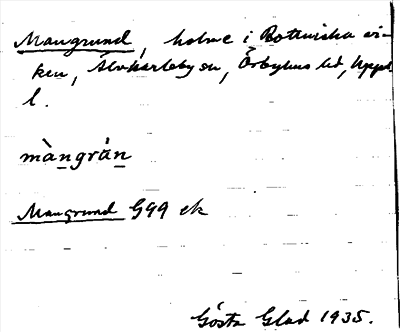 Mangrund, holme i Bottniska vi-
ken, Älvkarleby sn, Örbyhus hd, Uppsl
l.
màngrån
Mangrund G99 ek
Gösta Glad 1935.